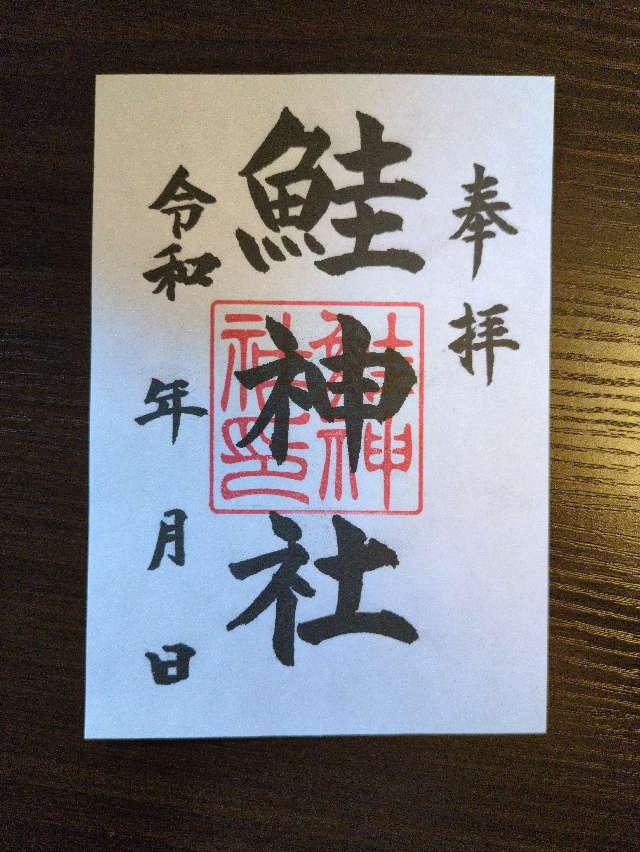 奉拝
鮭神社
鮭神
社印
令和 年 月 日